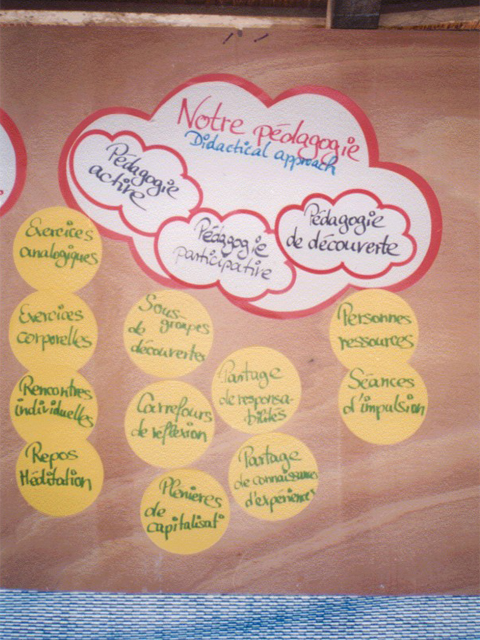 Notre pédagogie
Didactical approach
Pédagogie
active
Pédagogie
participative
Pédagogie
de découverte
Exercices
analogiques
Exercices
corporelles
Rencontres
individuelles
Repos
Méditation
Sous-
groupes
de
découvertes
Carrefours
de réflexion
Plénières
de
capitalisat
Partage
de responsa-
bilités
Partage
de connaissances
d'expériences
Personnes
ressources
Séances
d'impulsion